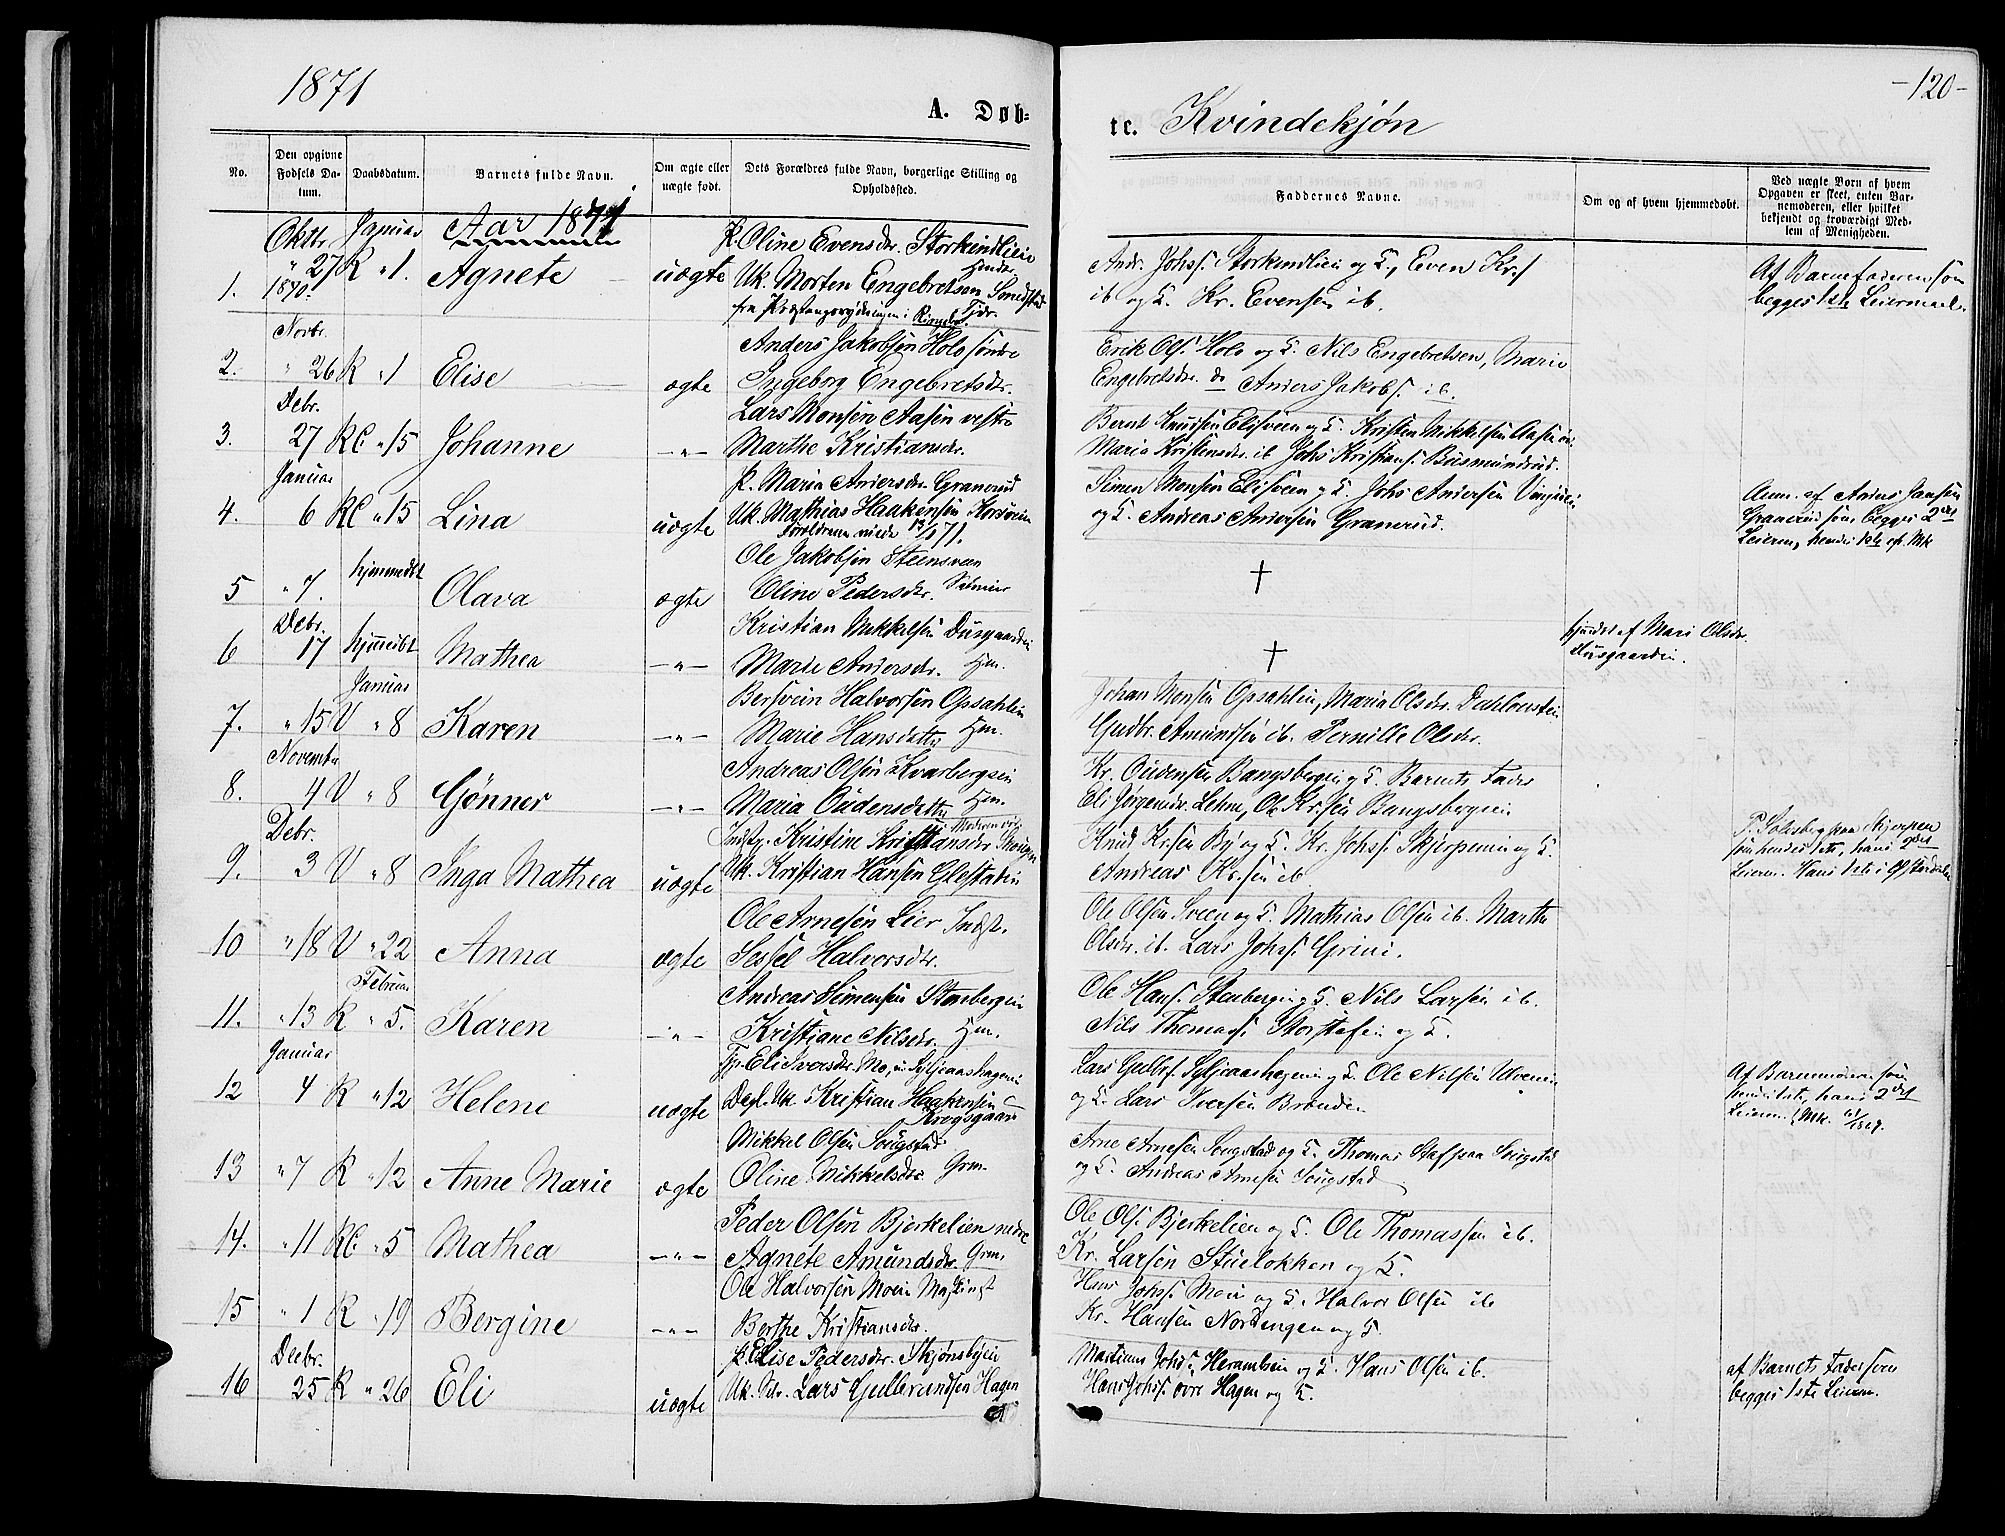 1871
-120-
A. Døb-
te. Kvindekjøn
No.
Den opgivne Fødsels Datum.
Daabsdatum.
Barnets fulde Navn.
Om ægte eller uægte født.
Dets Forældres fulde Navn, borgerlige Stilling og Opholdssted.
Faddernes Navne.
Om og af hvem hjemmedøbt.
Ved uægte Børn af hvem Opgaven er skeet, enten Barnemoderen, eller hvilket bekjendt og troværdigt Medlem af Menigheden.
Oktbr. Januar Aar 1871
P. Oline Evensdr. Storkindlien
1. " 27 1870. K " 1. Agnete uægte Uk. Morten Engebretsen
Andr. Johs. Storkindlien og K, Even Kr.s
ib og K. Kr. Evensen ib.
Af Barnefaderen som
begges 1ste Leiermaal.
Novbr.
Anders Jakobsen Holo søndre
2. " 26 K " 1 Elise ægte Ingeborg Engebretsdr.
Erik Ols. Holo og K. Nils Engebretsen, Marie
Engebretsdr. do Anders Jakobs. ib.
Debr.
Lars Monsen Aasen vestre
3. 27 KC " 15 Johanne -"- Marthe Kristiansdr.
Bernt Knudsen Elisveen og K. Kristen Mikkelsen Aasen
Marie Kristensdr. ib Johs Kristians. Busmundrud.
Januar
P. Maria Andersdr. Granerud
4. 6 KC " 15 Lina uægte Uk. Mathias Haakensen
Forældrene viede 13/1 71.
Simen Monsen Elisveen og K. Johs Andersen
og K. Andreas Andersen Granerud.
Anm. af Anders Jansen
Granerud som begges 2det
Leierm,
Ole Jakobsen Steensveen
5 " 7. hjemmedbt Olava ægte Oline Pedersdr.
†
Debr.
Kristian Mikkelsen Dusgaarden
6 17 hjemmedbt Mathea -"- Marie Andersdr. Hm.
†
hjmdbt af Mari Olsdr.
Dusgaarden.
Januar
Bersvein Halvorsen Opsahlen
7. " 15 V " 8 Karen -"- Marie Hansdatter Hm.
Johan Monsen Opsahlen, Maria Olsdr.
Gudbr. Amundsen ib. Pernille Olsdr.
Novembr
Andreas Olsen Kvarbergsen
8. 4 V " 8 Gønner -"- Maria Oudensdatter Hm.
Kr. Oudensen Bangsbergen og K. Barnets Fader
Eli Jørgensdr. Lehne, Ole Kr.sen Bangsbergeie.
Debr.
Indst. Kristine Kristiansdr.
9. 3 V " 8 Inga Mathea uægte Uk. Kristian Hansen
Knud Kr.sen By og K. Kr. Johs. Skjerpenin og K.
Andreas Kr.sen ib
P. Solesberg paa Skjerpen
som hendes 1ste, hans 2det
Leierm. Hans 1ste i Østerdalen
Ole Arnesen Lier Indst.
10 " 18 V " 22 Anna ægte Sessel Halvorsdr.
Ole Olsen Sveen og K. Mathias Olsen ib. Marthe
Olsdr. ib. Lars Johs. Grini.
Februar
Andreas Simensen Stenbergeie
11. " 13 K " 5. Karen -"- Kristiane Nilsdr. Hm.
Ole Hans. Stenbergeie og K. Nils Larsen ib.
Nils Thomas. Storstafen og K.
Januar
Tj. Eli Iversdr. Moe,
12 4 K " 12 Helene uægte Degl. Uk. Kristian Haakensen
Krogsgaard
Lars Gulbr. Syljuaashagen og K. Ole Nilsen Ulvenen
og K. Lars Iversen Brænden
Af Barnemoderen som
hendes 1ste, hans 2det
Leierm.
Mikkel Olsen Sougstad
13 " 7 K " 12 Anne Marie ægte Oline Mikkelsdr. Grm.
Arne Arnesen Sougstad og K. Thomas Staf paa Sougstad
og K. Andreas Arnesen Sougstad
Peder Olsen Bjerkelien nedre
14. " 11 KC. " 5 Mathea -"- Agnete Amundsdr. Grm.
Ole Ols. Bjerkelien og K. Ole Thomassen ib.
Kr. Larsen Stuelokken og K.
Ole Halvorsen Moen
15 " 1 K " 19 Bergine -"- Berthe Kristiansdr.
Hans Johs. Moen og K. Halvor Olsen ib
Kr. Hansen Nordengen og K.
Decbr.
P. Elise Pedersdr. Skjønsbyen
16 25 K " 26 Eli uægte Uk. Sdr. Lars Gulbrandsen Hagen
Martinus Johs. og K. Hans Olsen ib.
Hans Johs. øvre Hagen og K.
af Barnets Fader som
begges 1ste Leierm.